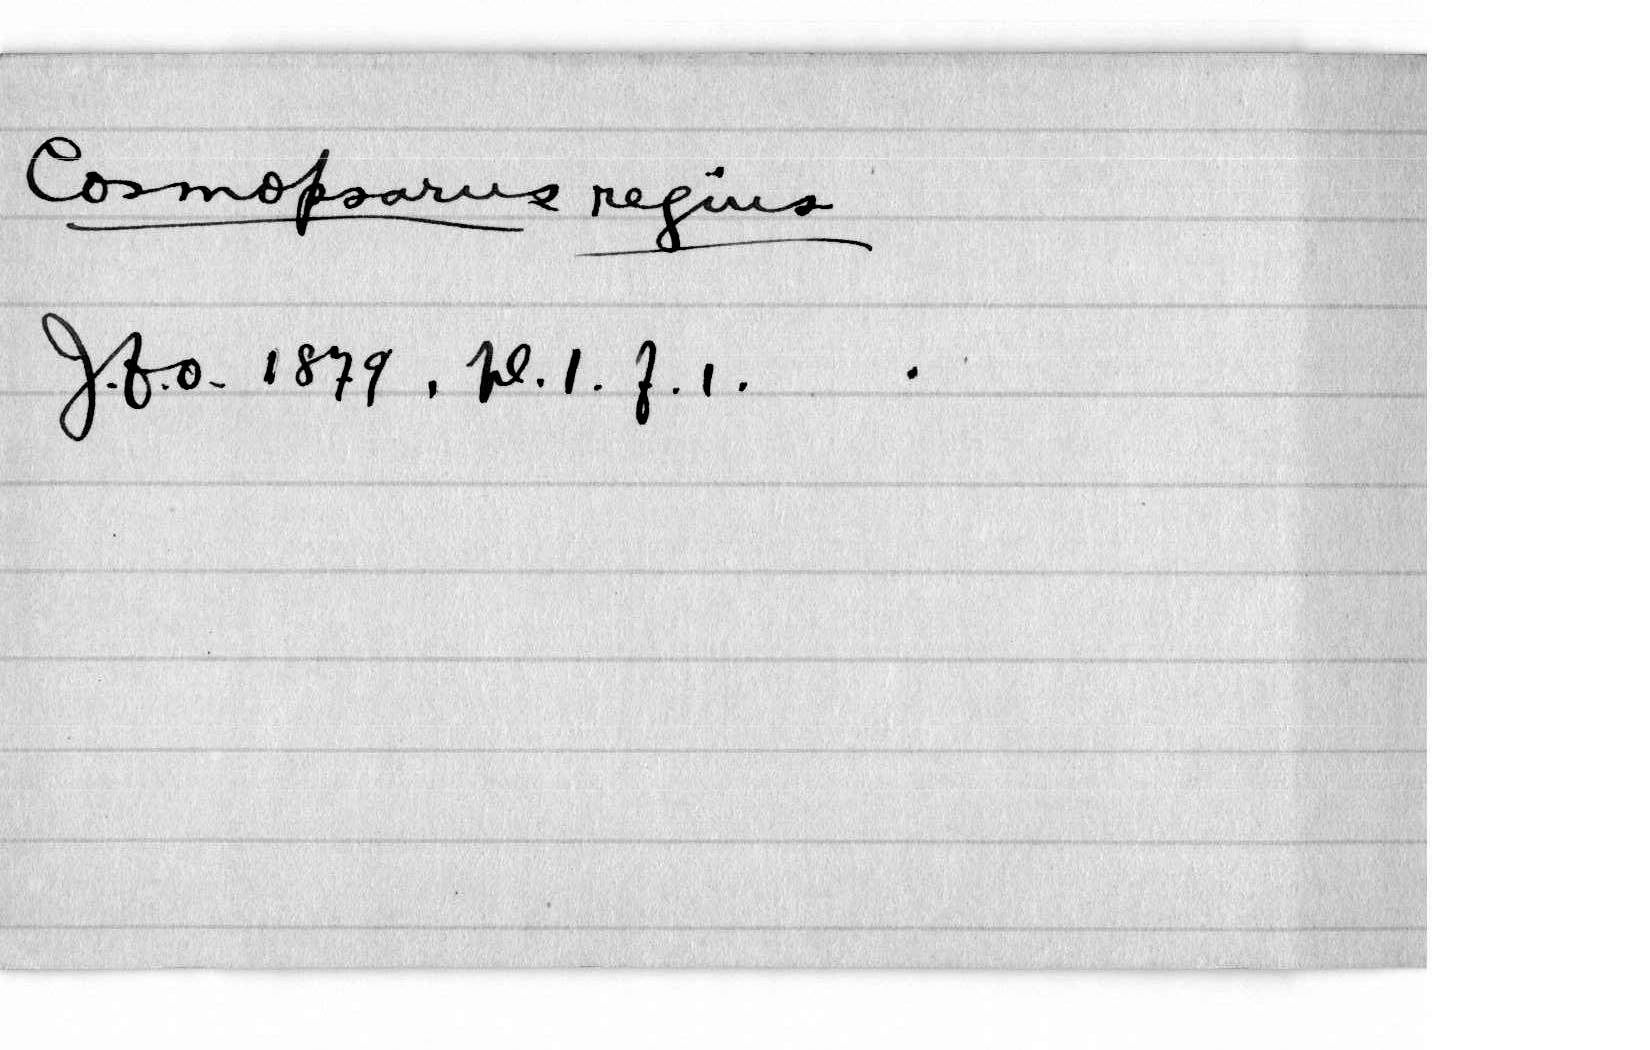 Cosmopsarus regius
J.f.O. 1879, pl. 1. f. 1.